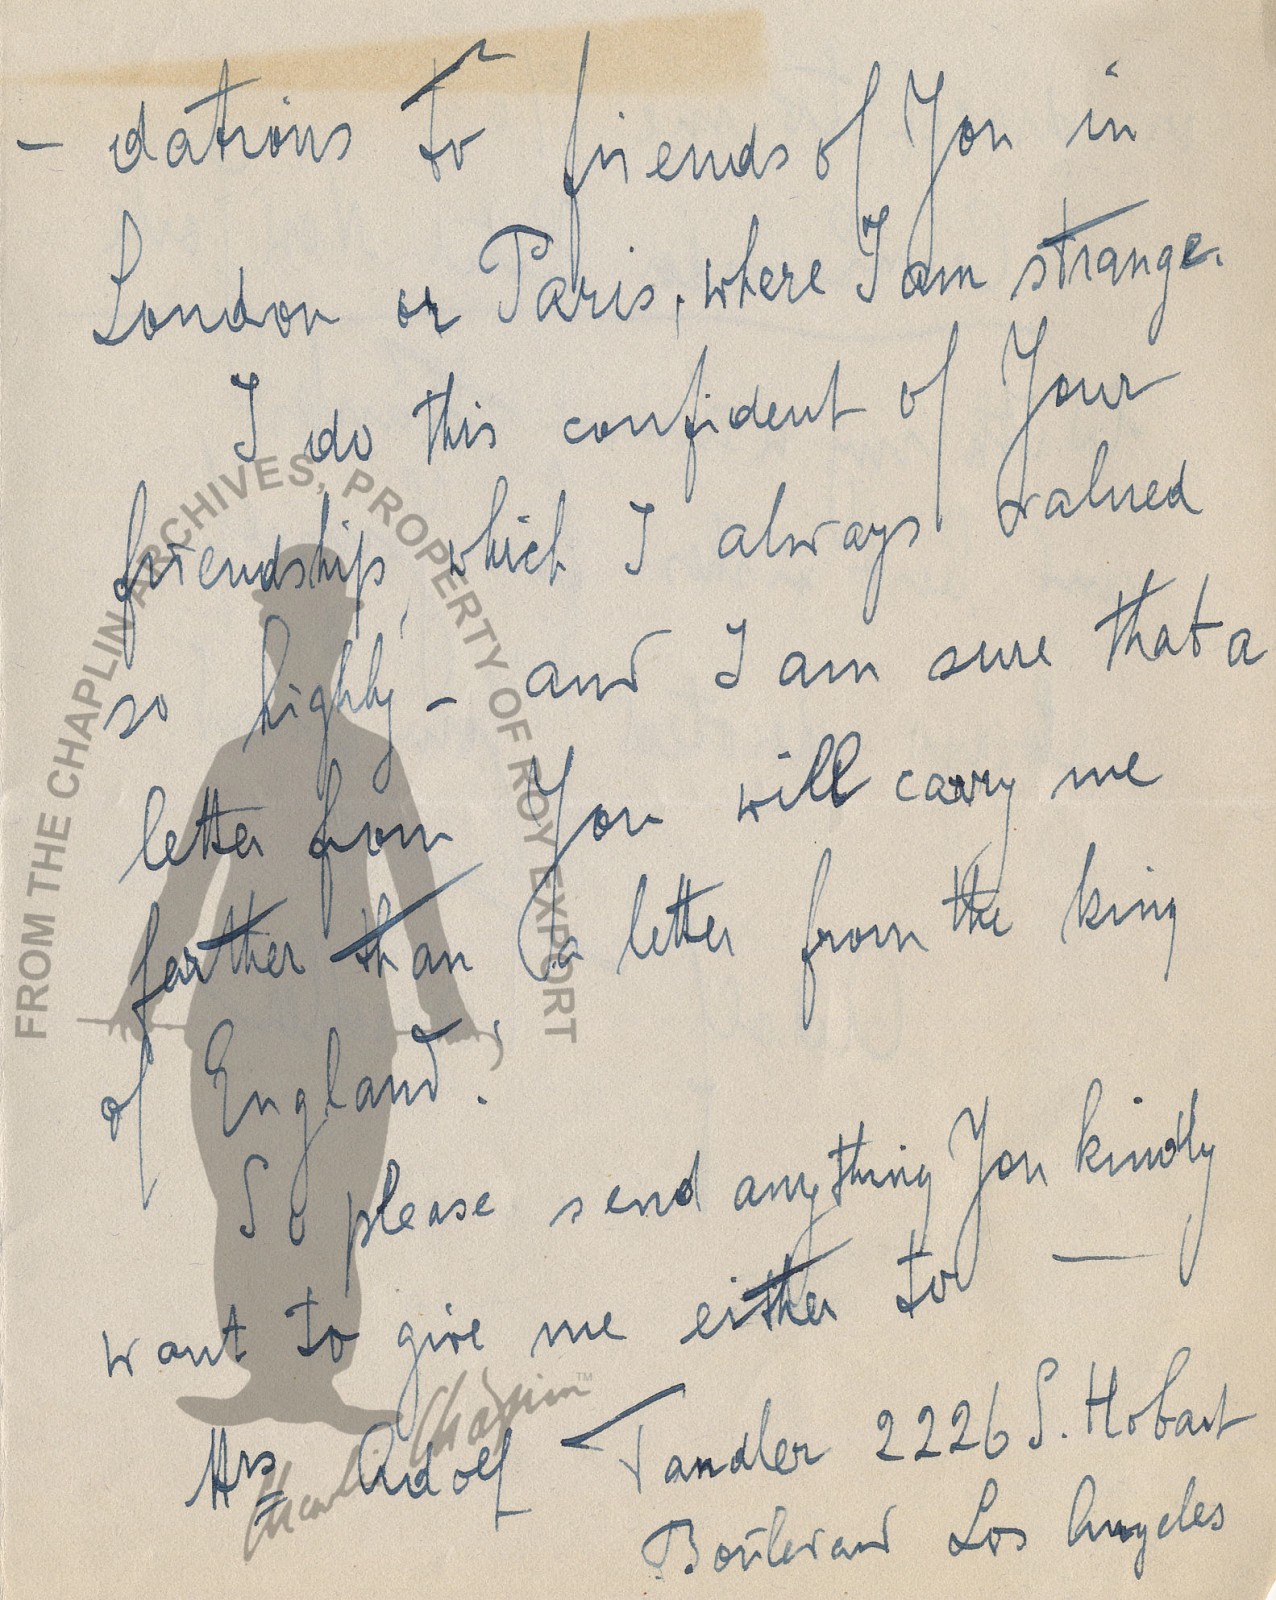 - dations to friends of You in
London or Paris, where I am strange.
I do this confident of Your
friendship, which I always valued
so highly - and I am sure that a
letter from You will carry me
farther than a letter from the king
of England.
So please send anything You kindly
want to give me either to —
Mrs Adolf Tandler 2226 S. Hobart
Boulevard Los Angeles
FROM THE CHAPLIN ARCHIVES, PROPERTY OF ROY EXPORT
Charlie Chaplin™